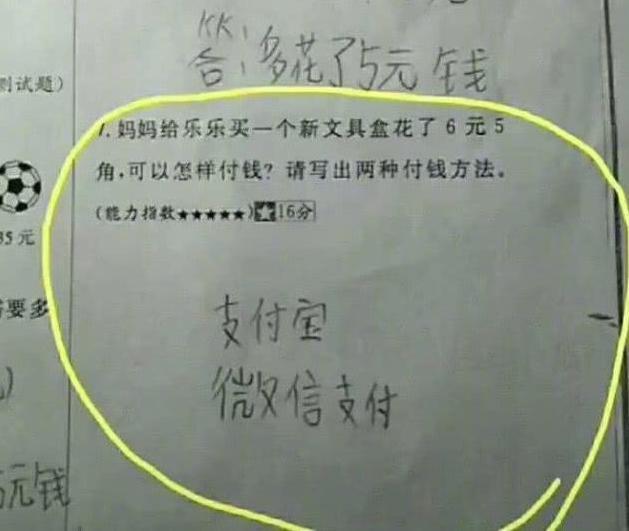 KK
答:多花了5元钱
测试题)
7.妈妈给乐乐买一个新文具盒花了6元5
角,可以怎样付钱?请写出两种付钱方法。
(能力指数★★★★★)★16分
35元
要多
支付宝
微信支付
)
元钱